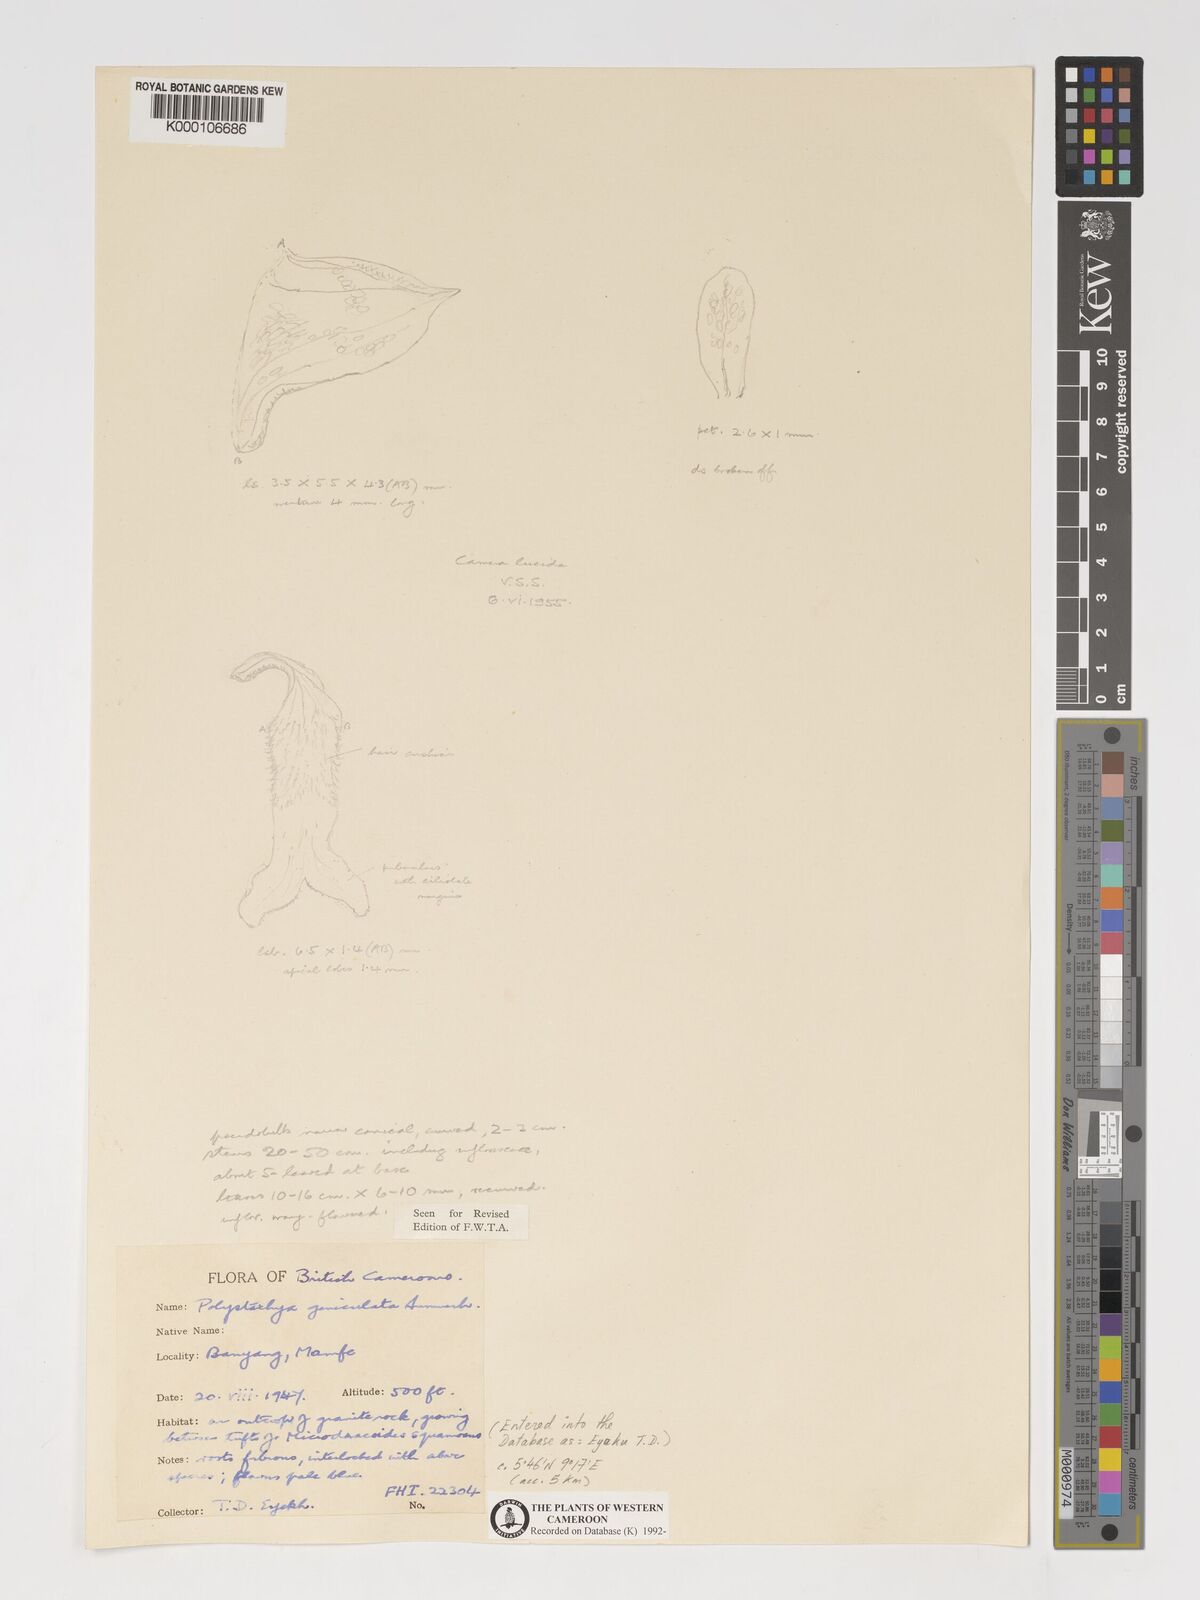 ROYAL BOTANIC GARDENS KEW
K000106686
A
B
ls. 3.5 × 5.5 × 4.3 (AB) mm.
mentum 4 mm. long.
pet. 2.6 × 1 mm.
ds broken off.
Camera lucida
V.S.S.
6.vi.1955.
A
B
hair cushion
puberulous
with ciliolate
margins
lab. 6.5 × 1.4 (AB) mm.
apical lobes 1.4 mm.
pseudobulbs narrow conical, curved, 2-3 cm.
stems 20-50 cm. including inflorescence,
about 5-leaved at base
leaves 10-16 cm. × 6-10 mm, recurved.
inflor. many-flowered.
Seen for Revised
Edition of F.W.T.A.
FLORA OF British Cameroons.
Name: Polystachya geniculata Summerh.
Native Name:
Locality: Banyang, Mamfe
Date: 20.viii.1947. Altitude: 500 ft.
Habitat: on outcrop of granite rock, growing
between tufts of Microdracoides squamosus
Notes: roots fibrous, interlocked with above
species; flowers pale blue.
FHI. 22304
Collector: T.D. No.
(Entered into the
Database as: Eyaku T.D.)
c. 5°46'N 9°17'E
(acc. 5 km)
THE PLANTS OF WESTERN
CAMEROON
Recorded on Database (K) 1992-
DARWIN
INITIATIVE
Royal Botanic Gardens
Kew
0 1 2 3 4 5 6 7 8 9 10
cm
copyright reserved
inches
centimeters
Density
Don Williams
M0000974